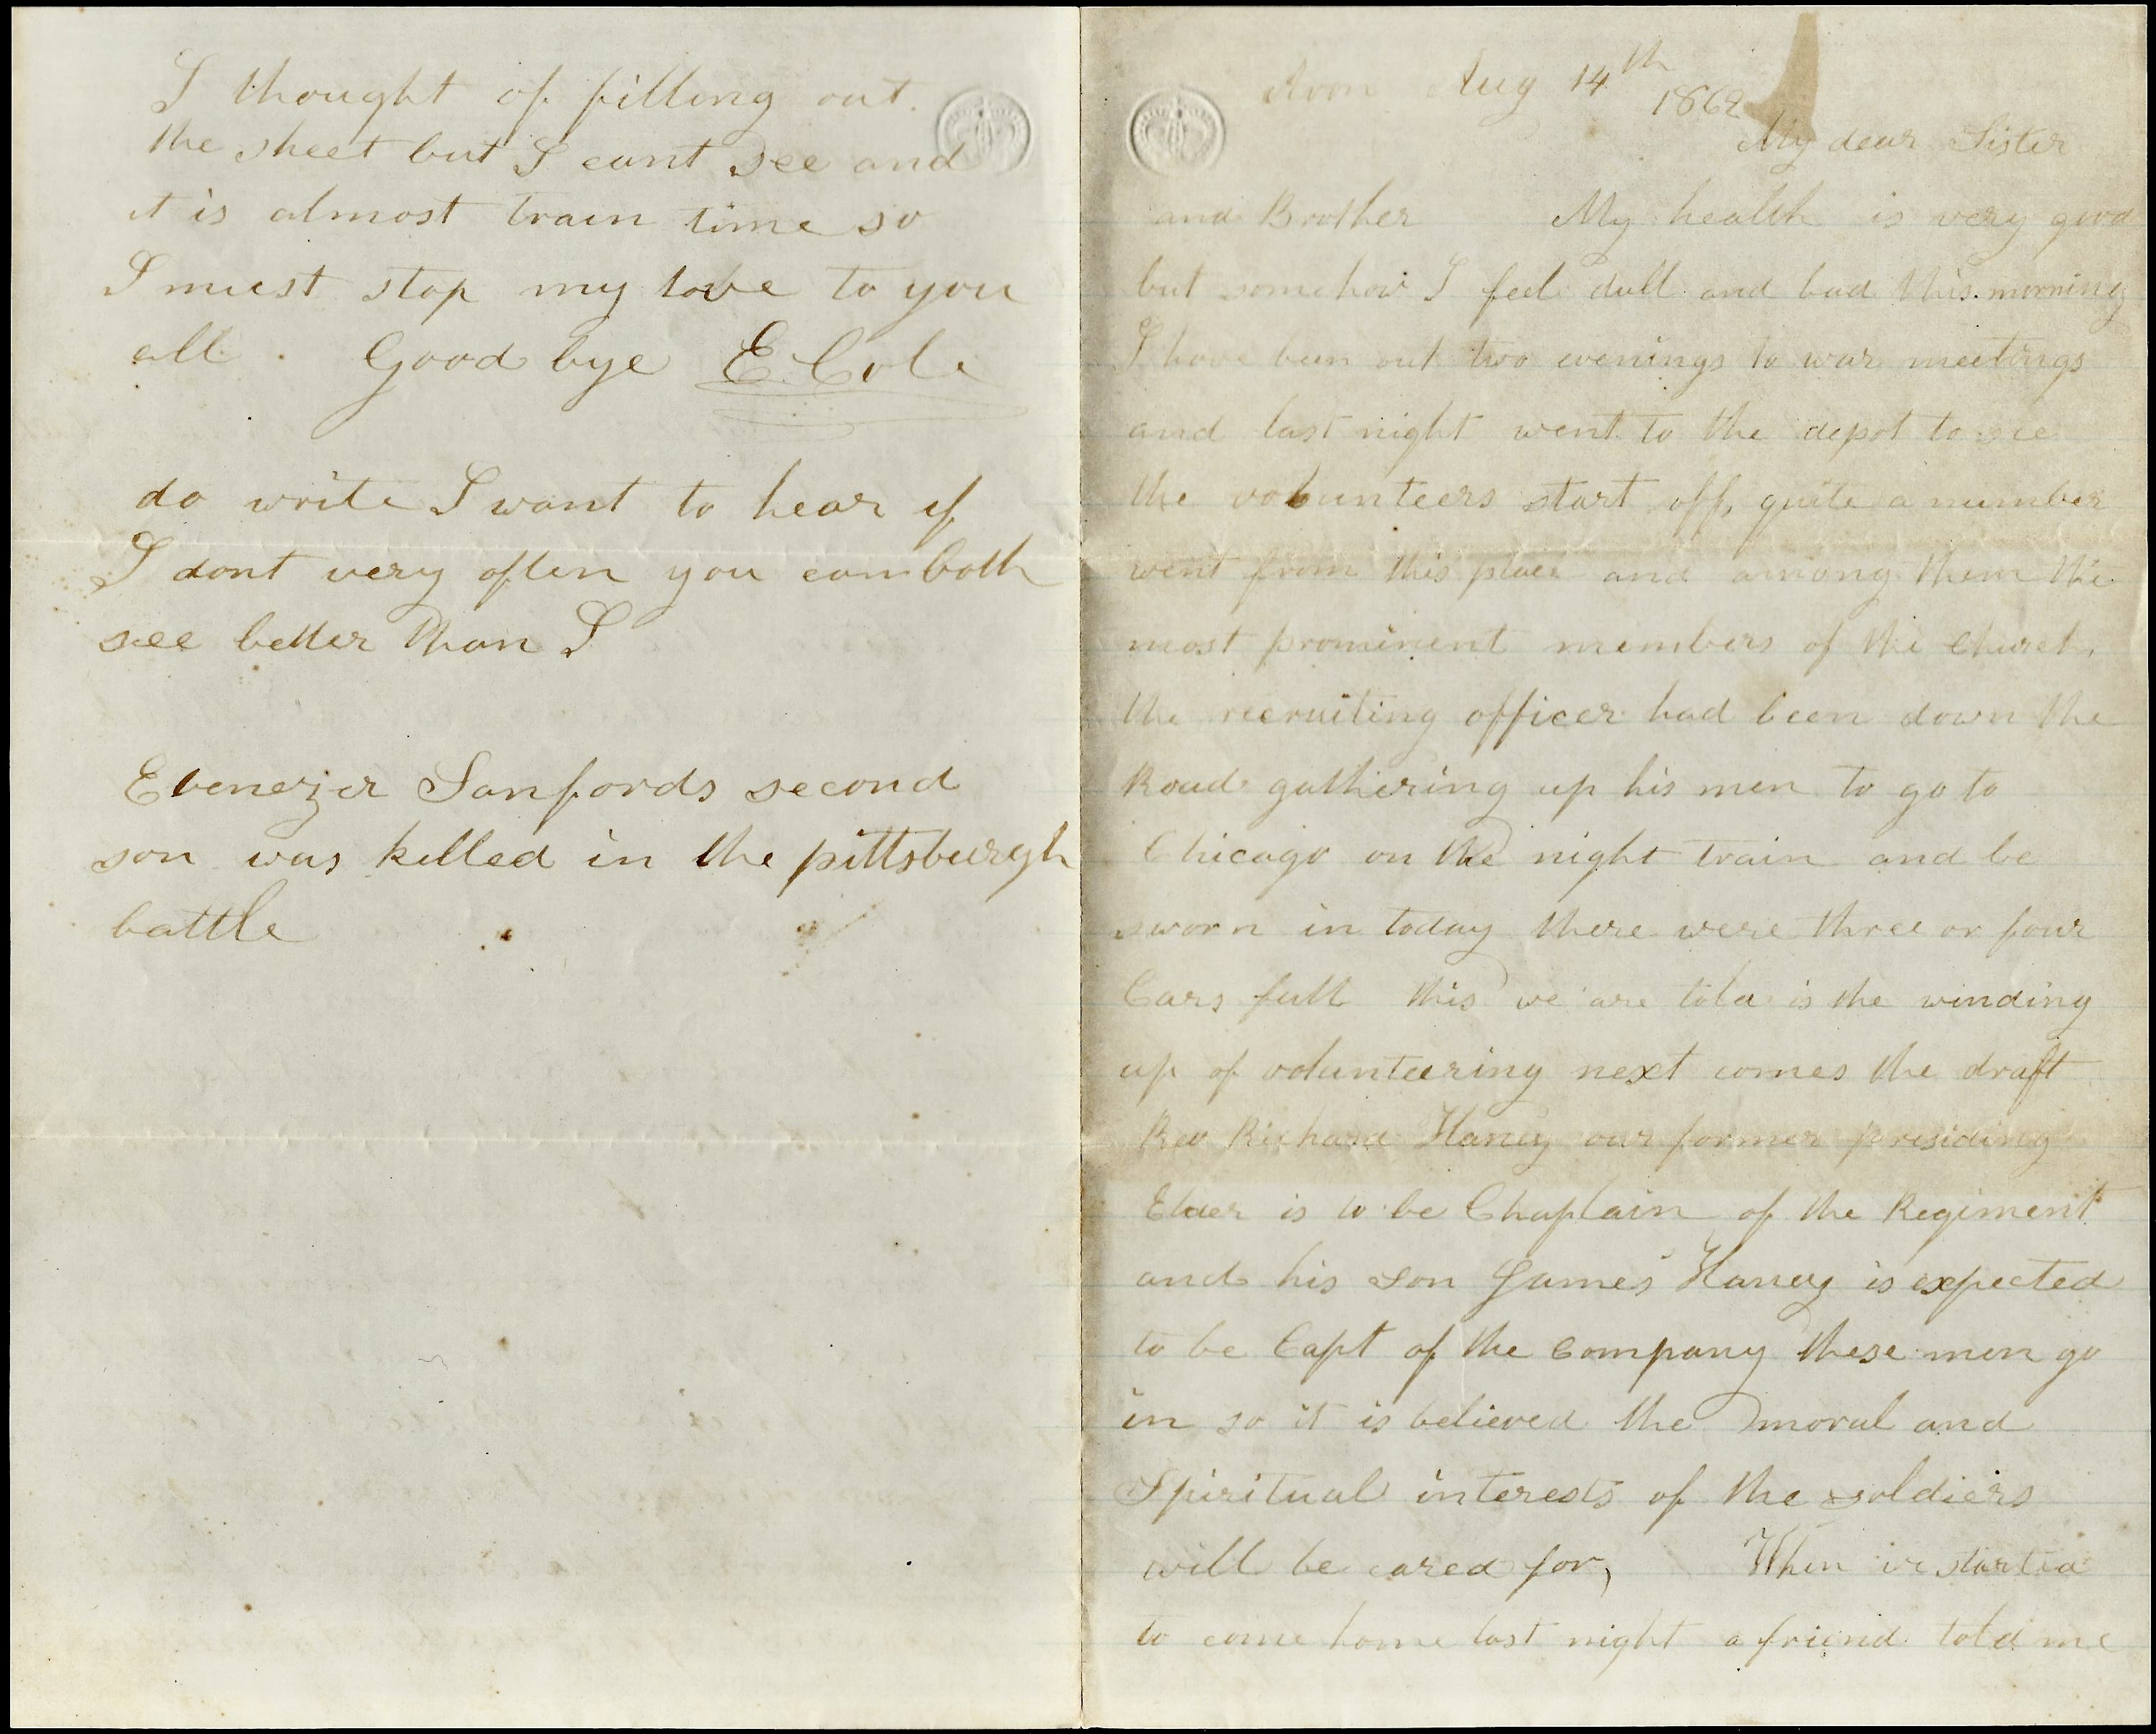 I thought of filling out
the sheet but I cant see and
it is almost train time so
I must stop my love to you
all . Good bye E. Cole
do write I want to hear if
I dont very often you can both
see better than I
Ebenezer Sanfords second
son was killed in the pittsburgh
battle
Avon Aug 14th 1862
My dear Sister
and Brother My health is very good
but somehow I feel dull and bad this morning
I have been out two evenings to war meetings
and last night went to the depot to see
the volunteers start off, quite a number
went from this place and among them the
most prominent members of the Church,
the recruiting officer had been down the
Road gathering up his men to go to
Chicago on the night train and be
sworn in today there were three or four
Cars full this we are told is the winding
up of volunteering next comes the draft
Rev Richard Haney our former presiding
Elder is to be Chaplain of the Regiment
and his son James Haney is expected
to be Capt of the Company these men go
in so it is believed the moral and
Spiritual interests of the soldiers
will be cared for, When we started
to come home last night a friend told me